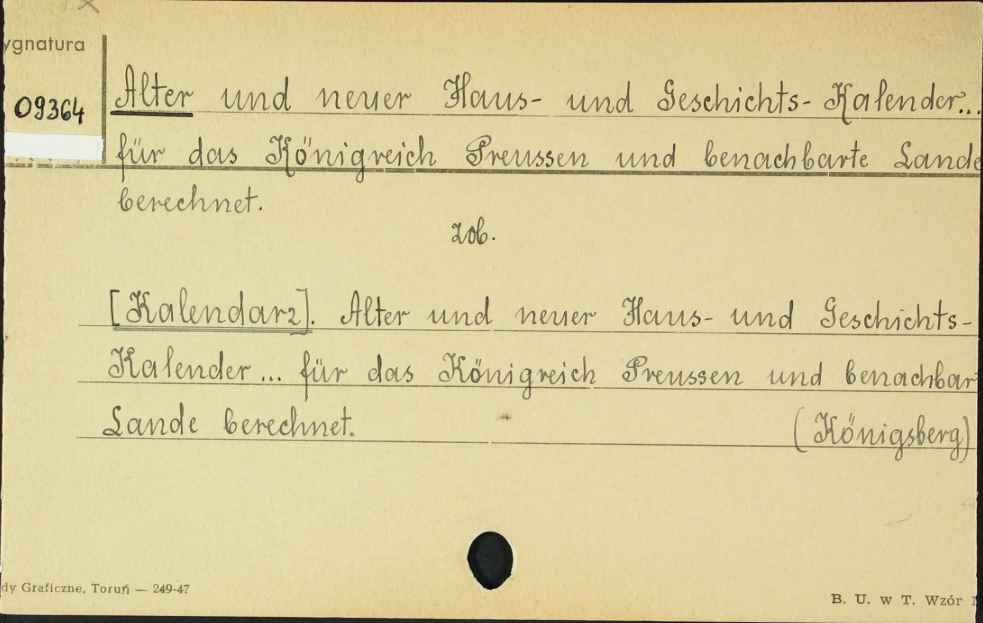 ygnatura
09364
Alter und neuer Haus- und Geschichts-Kalender...
für das Königreich Preussen und benachbarte Lande
berechnet.
zob.
[Kalendarz]. Alter und neuer Haus- und Geschichts-
Kalender... für das Königreich Preussen und benachbar
Lande berechnet. (Königsberg)
dy Graficzne, Toruń — 249-47
B. U. w T. Wzór